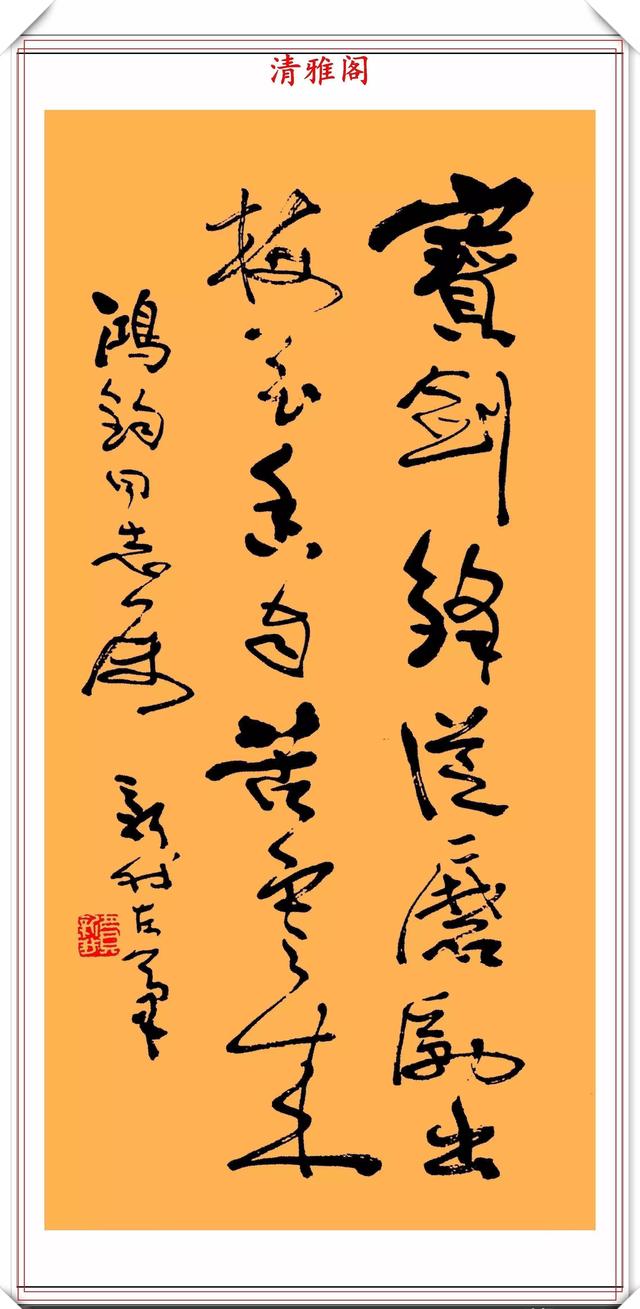 清雅阁
寶劍鋒從磨勵出
梅花香自苦寒來
鴻鈞同志屬 新我左筆